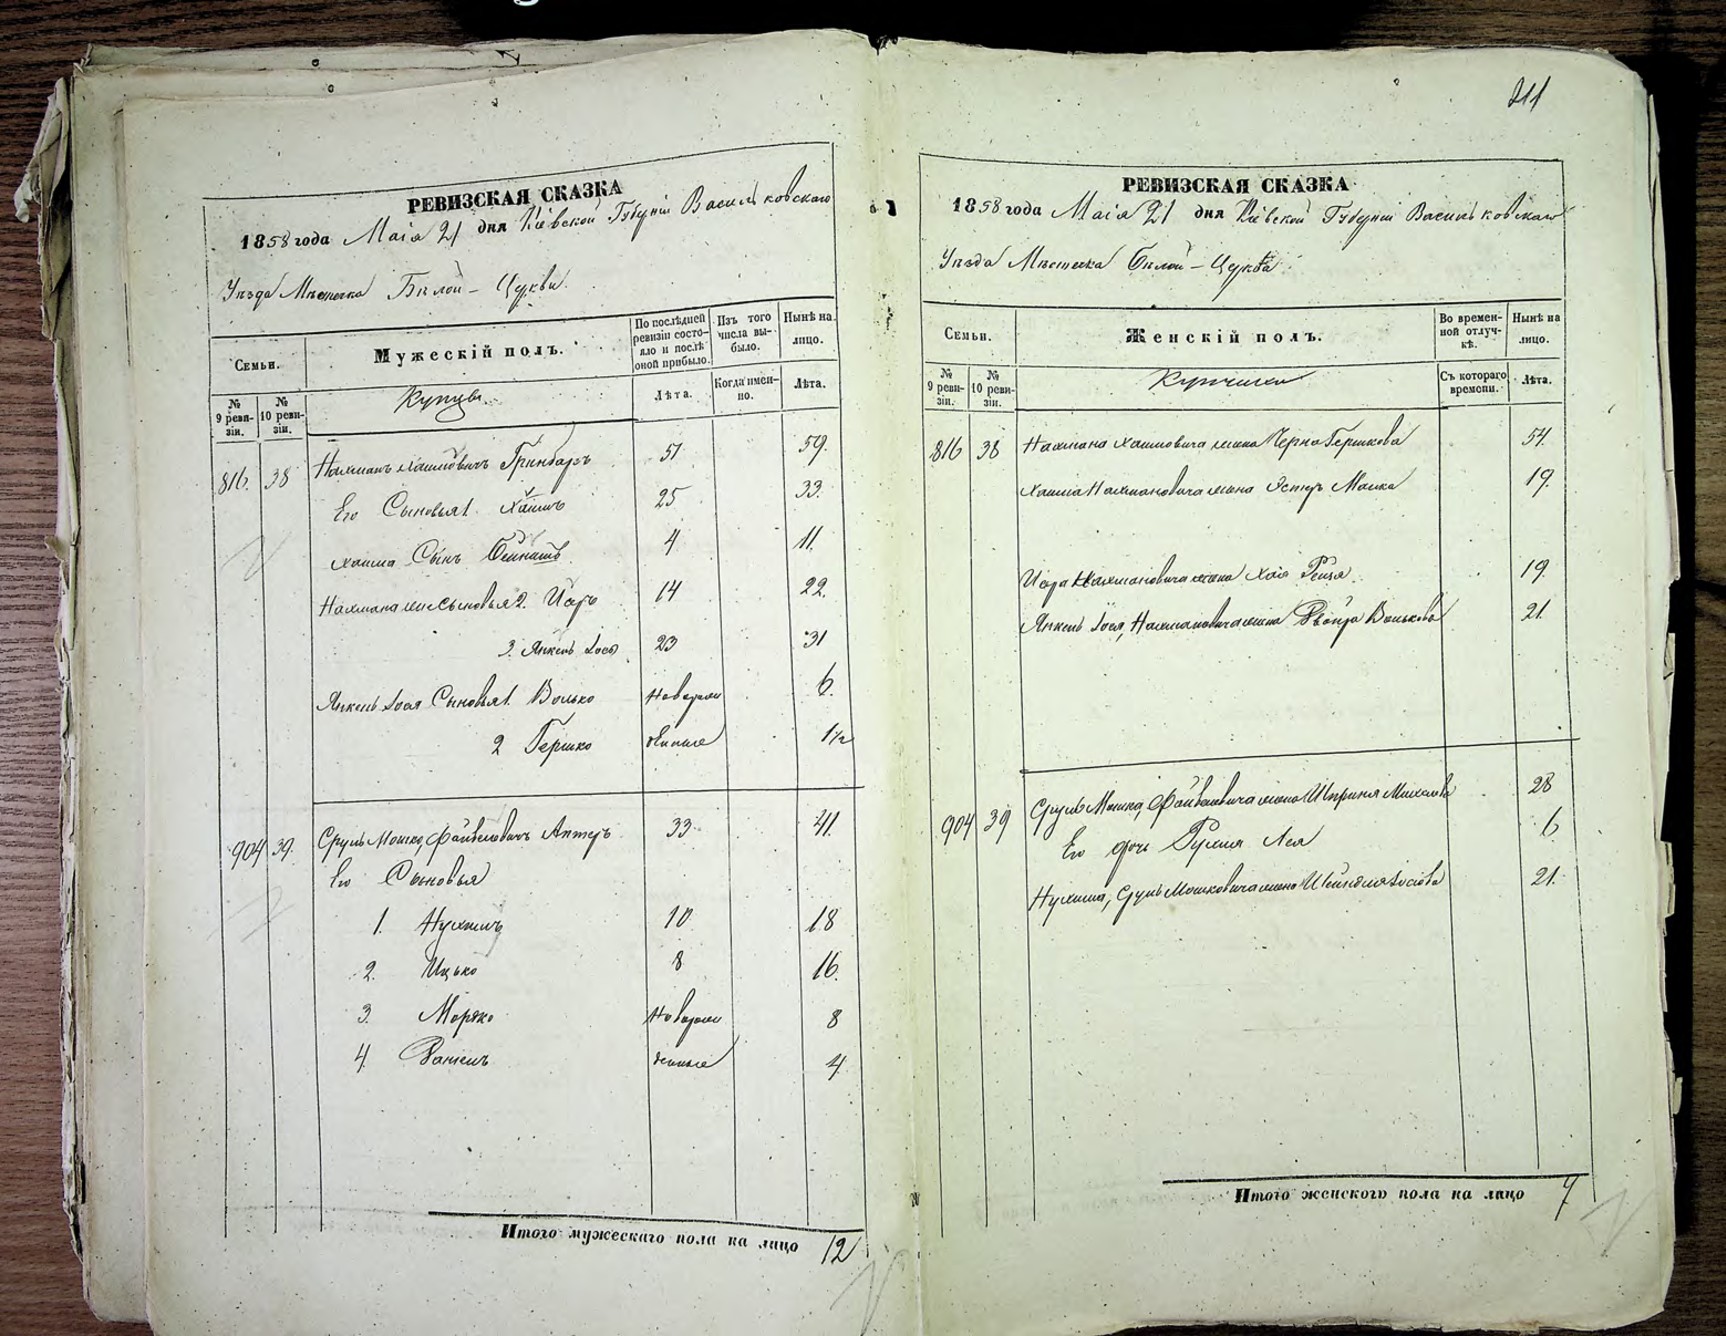 211
РЕВИЗСКАЯ СКАЗКА
1858 года Маія 21 дня Кіевской Губерніи Васильковскаго
Уѣзда Мѣстечка Бѣлой-Церкви.
Семьи.
Мужескій полъ.
По послѣдней ревизіи состояло и послѣ оной прибыло.
Изъ того числа выбыло.
Нынѣ на лицо.
№ 9 ревизіи.
№ 10 ревизіи.
Купцы
Лѣта.
Когда именно.
Лѣта.
816. 38 Нахманъ Хаимовичъ 51 59.
Его Сыновья 1. Хаимъ 25 33.
Хаима Сынъ 4 11.
Нахмана Сыновья 2. Иось 14 22.
3. Янкель Іось 23 31
Янкель Іося Сыновья 1. Волько Новорож 6.
2 Гершко денные 1½
904 39. Сруль Мошко Файвелевичъ Аптеръ 33 41.
Его Сыновья
1. Нухимъ 10 18
2. Ицько 8 16.
3. Моржко Новорож 8
4. Даніель денные 4
Итого мужескаго пола на лицо 12
РЕВИЗСКАЯ СКАЗКА
1858 года Маія 21 дня Кіевской Губерніи Васильковскаго
Уѣзда Мѣстечка Бѣлой-Церкви.
Семьи.
Женскій полъ.
Во временной отлучкѣ.
Нынѣ на лицо.
№ 9 ревизіи.
№ 10 ревизіи.
Съ котораго времени.
Лѣта.
816 38 Нахмана Хаимовича жена Черна Гершкова 54
Хаима Нахмановича жена Эстеръ Малка 19.
Нахмановича жена Хая Рейзя 19.
Янкель Іося, Нахмановича жена Двойра Волькова 21.
904 39 Сруль Мошка, Файвелевича жена 28
Его дочь Лея 6
Нухима, Сруль Мошковича жена Шейндля Іосіова 21.
Итого женскаго пола на лицо 7